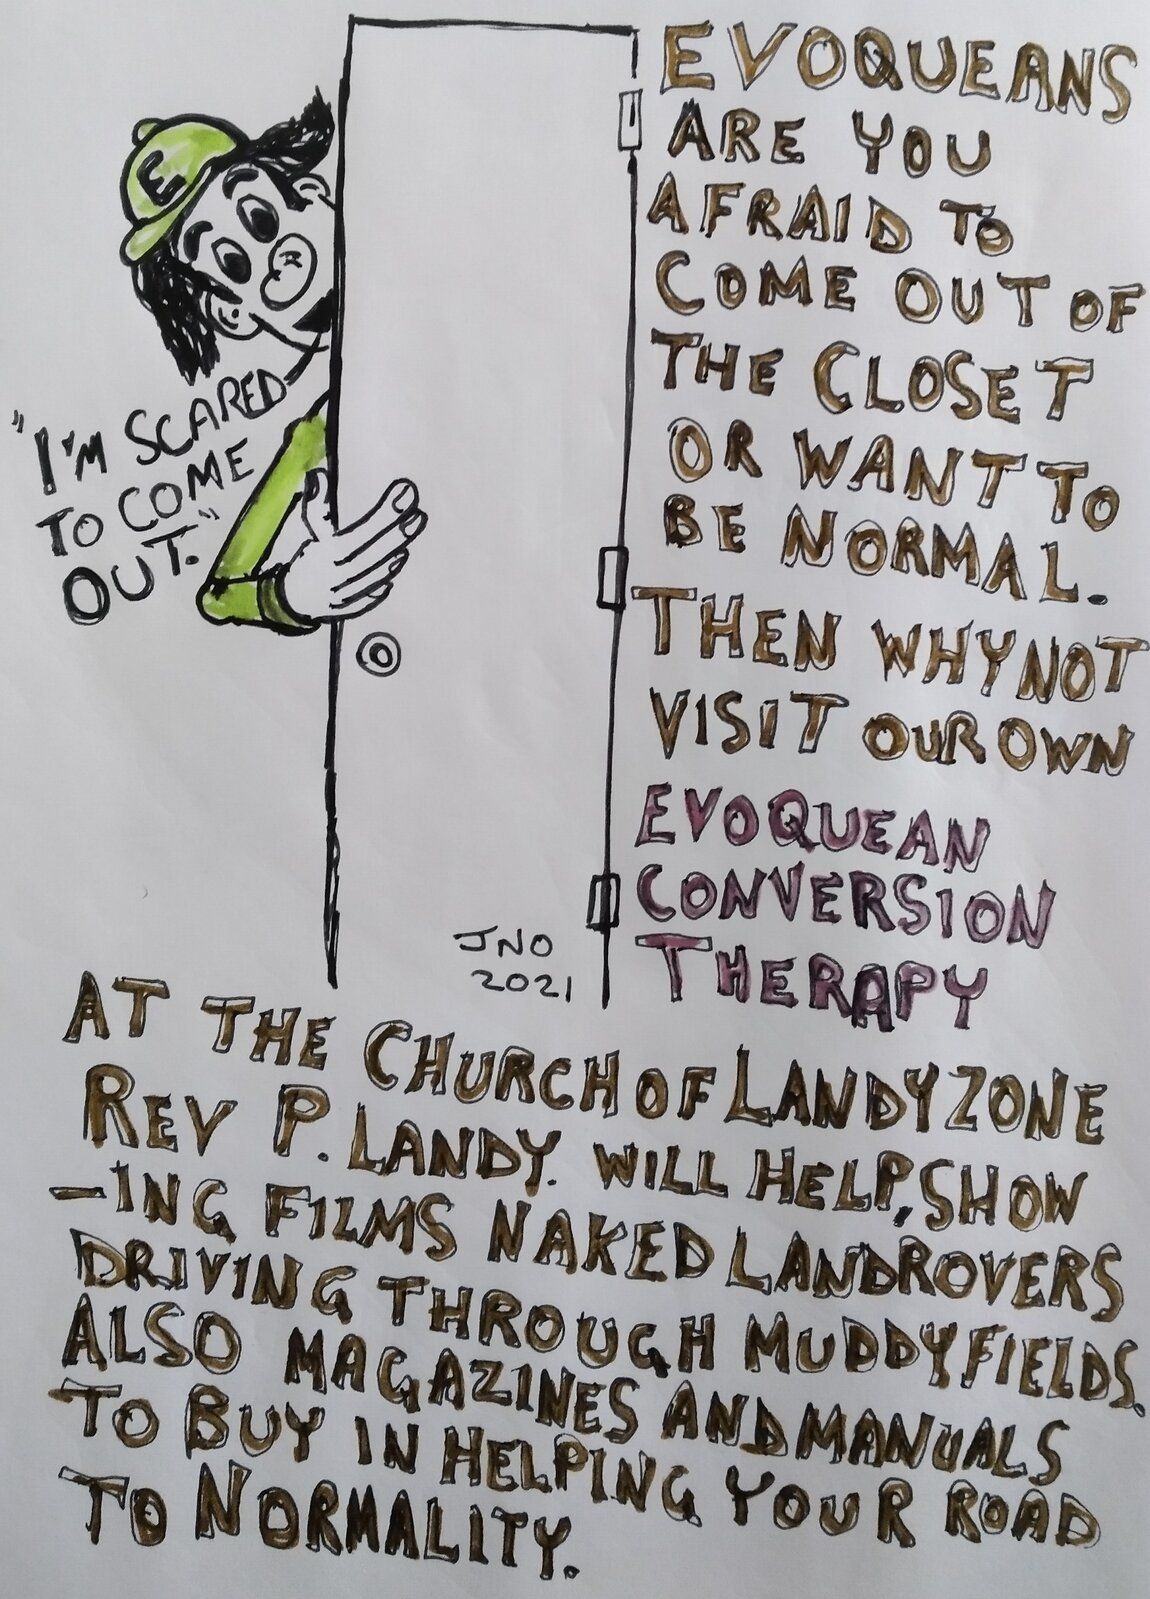 EVOQUEANS
ARE YOU
AFRAID TO
COME OUT OF
THE CLOSET
OR WANT TO
BE NORMAL.
THEN WHY NOT
VISIT OUR OWN
EVOQUEAN
CONVERSION
THERAPY
E
"I'M SCARED
TO COME
OUT."
JNO
2021
AT THE CHURCH OF LANDYZONE
REV P. LANDY. WILL HELP, SHOW
-ING FILMS NAKED LANDROVERS
DRIVING THROUGH MUDDY FIELDS.
ALSO MAGAZINES AND MANUALS
TO BUY IN HELPING YOUR ROAD
TO NORMALITY.